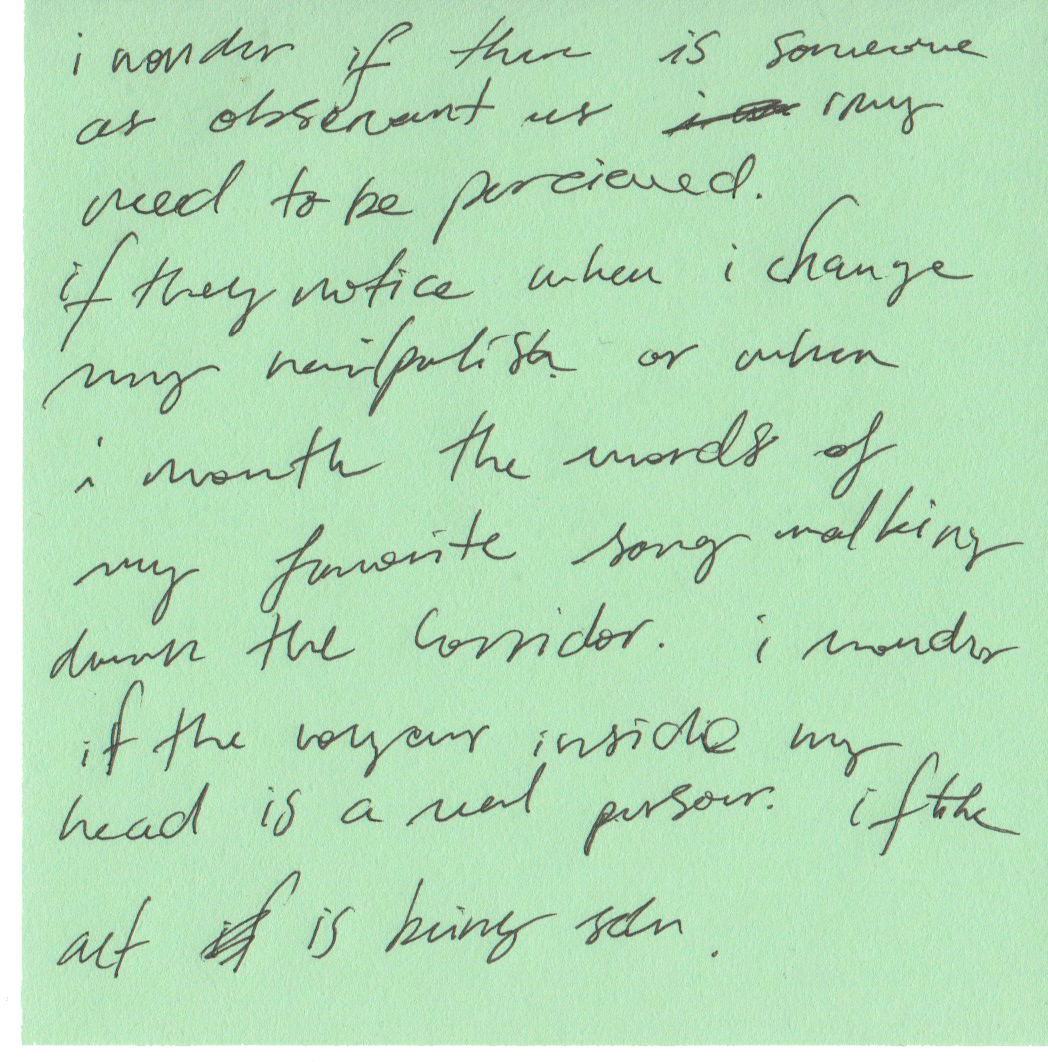 i wonder if there is someone
as observant as my
need to be percieved.
if they notice when i change
my nailpolish or when
i mouth the words of
my favorite song walking
down the corridor. i wonder
if the voyeur inside my
head is a real person. if the
act is being seen.